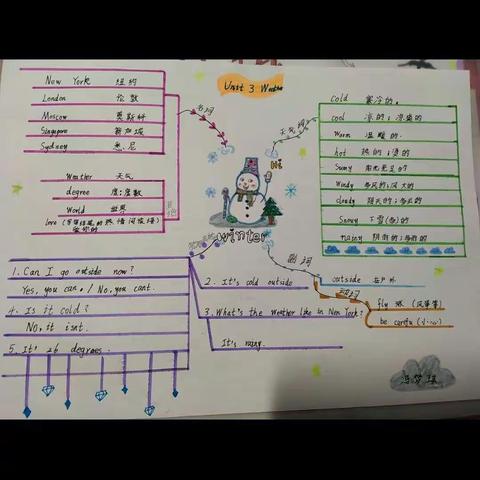 Unit 3 Weather
New York 纽约
London 伦敦
Moscow 莫斯科
Singapore 新加坡
Sydney 悉尼
名词
Weather 天气
degree 度;度数
World 世界
love
其他
天气词
cold 寒冷的。
cool 凉的;凉爽的
Warm 温暖的.
hot 热的;烫的
Sunny 阳光充足的
Windy 多风的;风大的
cloudy 阴天的;多云的
Snowy 下雪(多)的
rainy 阴雨的;多雨的
Hi
winter
副词
outside 在户外
动词
fly 放 (风筝等)
be carefu (小心)
1. Can I go outside now?
Yes, you can. / No, you cant.
2. It's cold outside
3. What's the Weather like in New York?
It's rainy.
4. Is it cold?
No, it isnt.
5. It's 26 degrees.